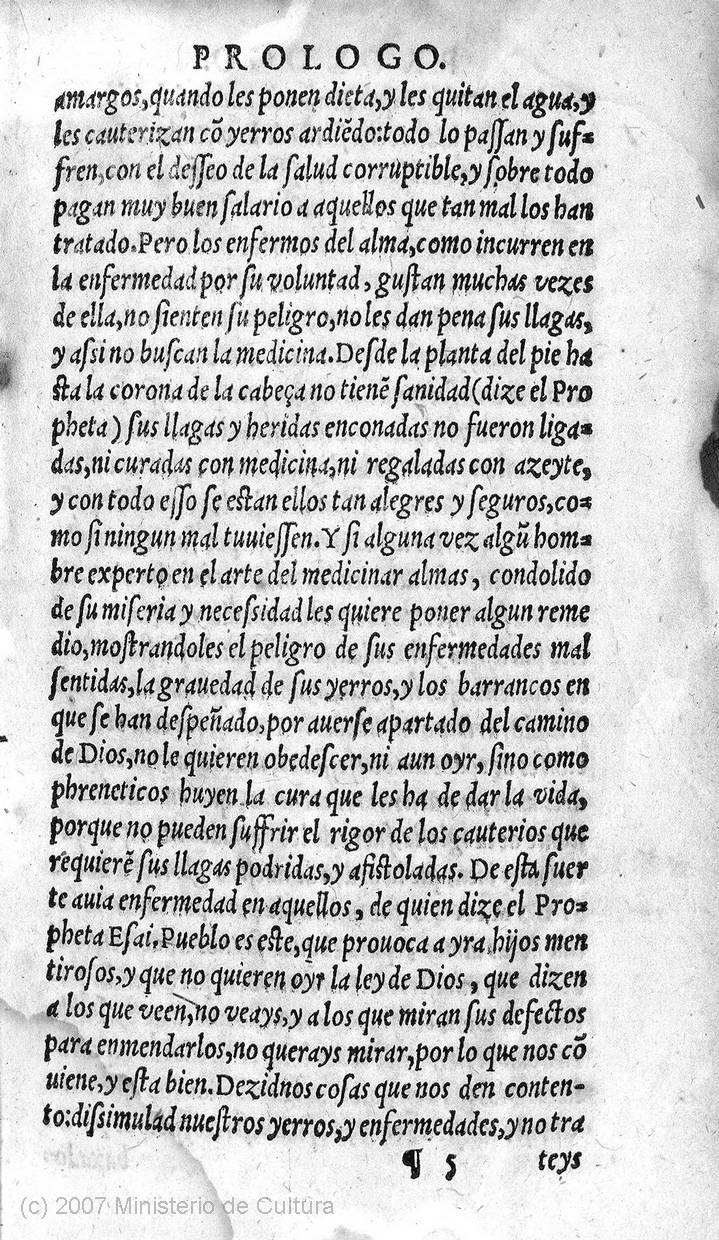 PROLOGO.
amargos,quando les ponen dieta,y les quitan el agua,y
les cauterizan cõ yerros ardiẽdo:todo lo paſſan y ſuf-
fren,con el deſſeo de la ſalud corruptible,y ſobre todo
pagan muy buen ſalario a aquellos que tan mal los han
tratado.Pero los enfermos del alma,como incurren en
la enfermedad por ſu voluntad, guſtan muchas vezes
de ella,no ſienten ſu peligro,no les dan pena ſus llagas,
y aſsi no buſcan la medicina.Deſde la planta del pie ha
ſta la corona de la cabeça no tienẽ ſanidad(dize el Pro
pheta) ſus llagas y heridas enconadas no fueron liga-
das,ni curadas con medicina,ni regaladas con azeyte,
y con todo eſſo ſe eſtan ellos tan alegres y ſeguros,co-
mo ſi ningun mal tuuieſſen.Y ſi alguna vez algũ hom-
bre experto en el arte del medicinar almas, condolido
de ſu miſeria y neceſsidad les quiere poner algun reme
dio,moſtrandoles el peligro de ſus enfermedades mal
ſentidas,la grauedad de ſus yerros,y los barrancos en
que ſe han deſpeñado,por auerſe apartado del camino
de Dios,no le quieren obedeſcer,ni aun oyr, ſino como
phreneticos huyen la cura que les ha de dar la vida,
porque no pueden ſuffrir el rigor de los cauterios que
requierẽ ſus llagas podridas,y afiſtoladas. De eſta ſuer
te auia enfermedad en aquellos, de quien dize el Pro-
pheta Eſai.Pueblo es eſte,que prouoca a yra,hijos men
tiroſos,y que no quieren oyr la ley de Dios, que dizen
a los que veen,no veays,y a los que miran ſus defectos
para enmendarlos,no querays mirar,por lo que nos cõ
uiene,y eſta bien.Dezidnos coſas que nos den conten-
to:diſsimulad nueſtros yerros,y enfermedades,y no tra
¶ 5 teys
(c) 2007 Ministerio de Cultura